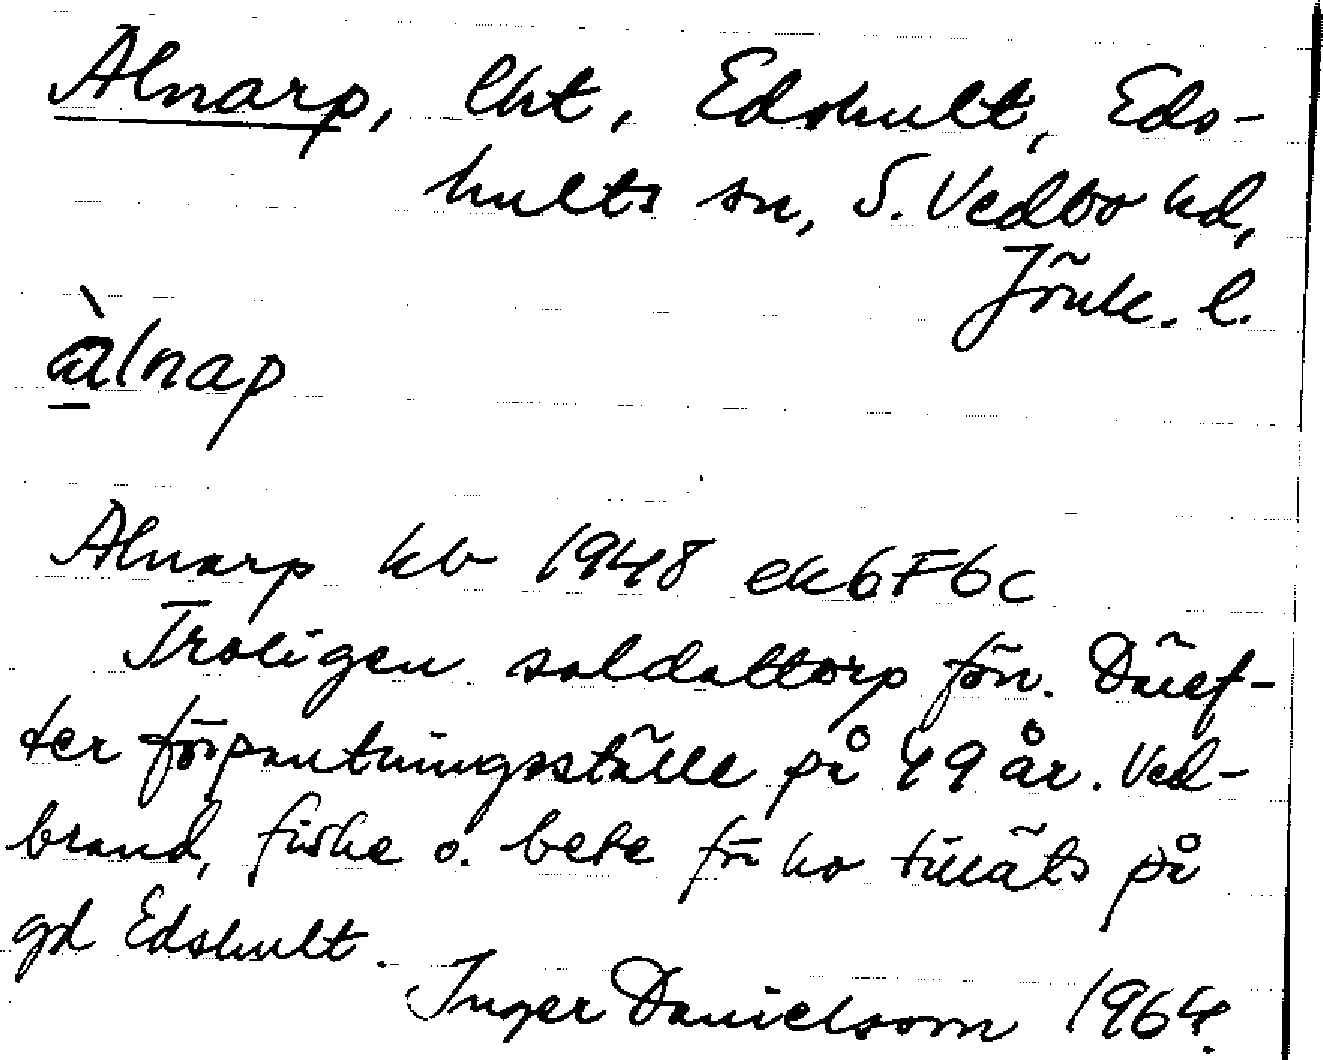 Alnarp, lht, Edshult, Eds-
hults sn, S. Vedbo hd,
Jönk. l.
àlnap
Alnarp kb 1948 ek 6F6c
Troligen soldattorp förr. Däref-
ter förpantningsställe på 49 år. Ved-
brand, fiske o. bete för ko tilläts på
gd Edshult.
Inger Danielsson 1964.